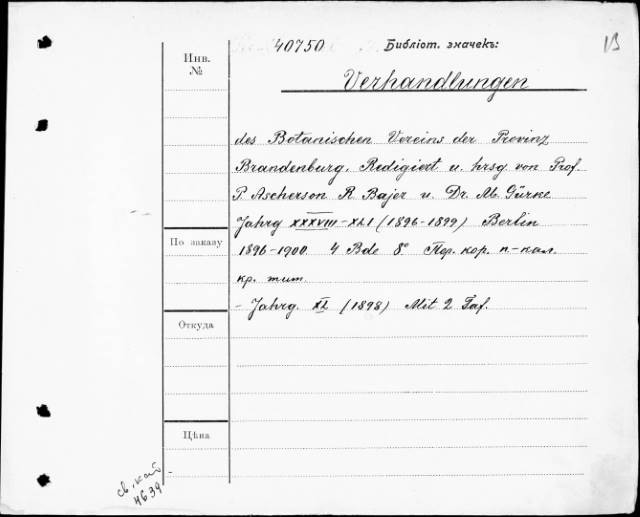 40750
Библіот. значекъ:
В
Инв.
№
Verhandlungen
des Botanischen Vereins der Provinz
Brandenburg. Redigiert u. hrsg. von Prof.
P. Ascherson R. Bajer u. Dr. M. Gürke
Jahrg XXXVIII-XLI (1896-1899) Berlin
По заказу
1896-1900. 4 Bde 8° Пер. кор. п-кол.
кр. тит.
- Jahrg. XL (1898) Mit 2 Taf.
Откуда
Цѣна
4639